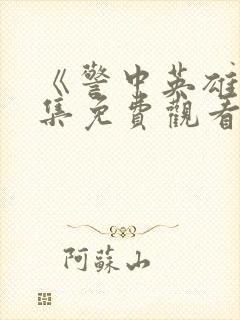 《警中英雄
集免費觀看
阿蘇山